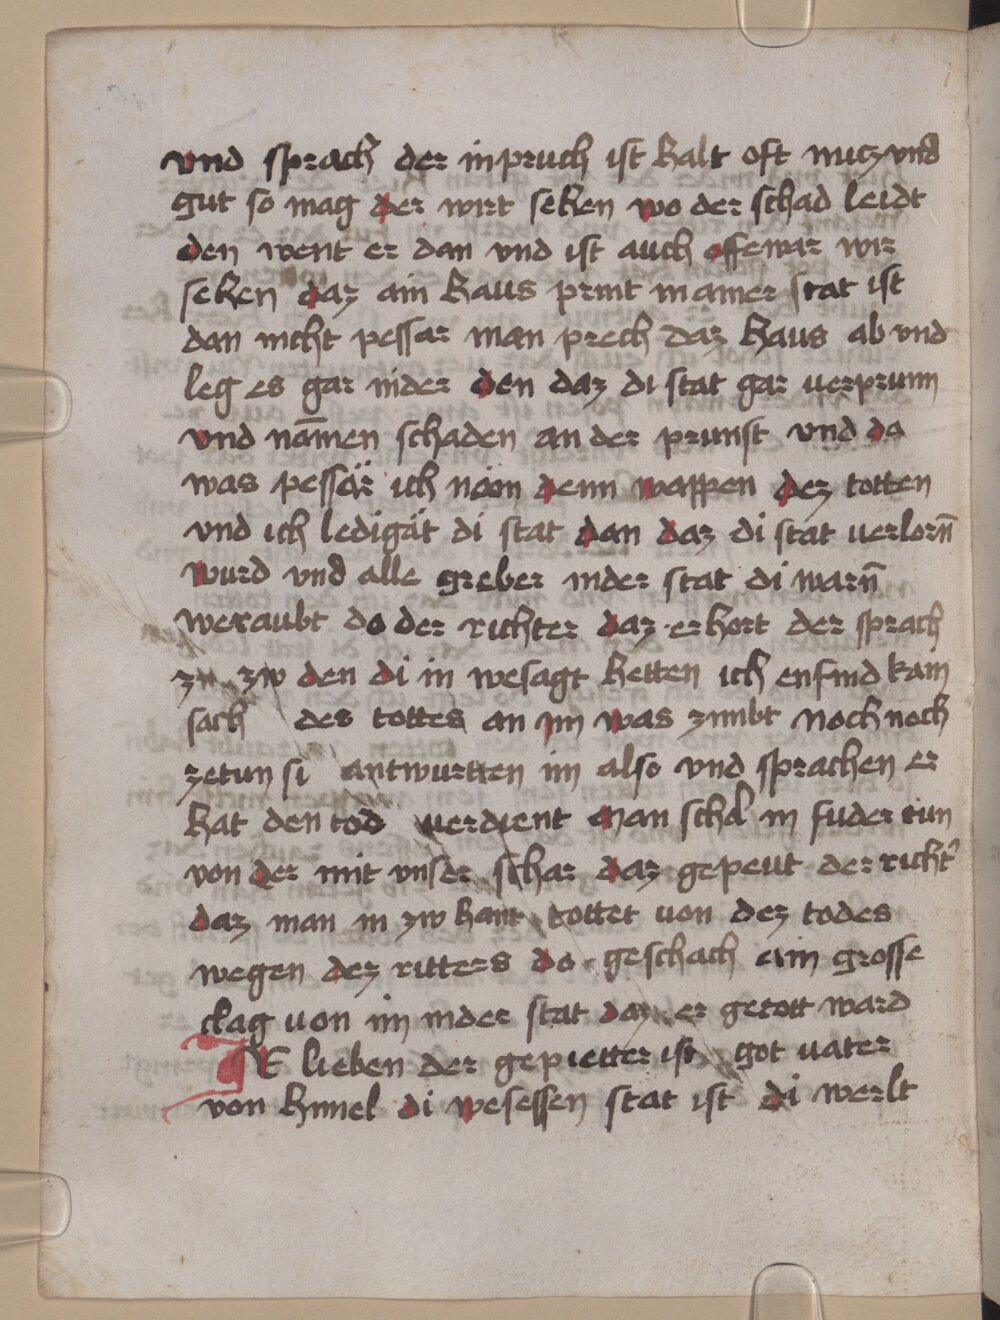 vnd sprach der inpruch ist halt oft nucz vnd
gut so mag der wirt sehen wo der schad leidt
den went er dan vnd ist auch offewar wir
sehen daz ain haus print in ainer stat ist
dan nicht pessar man prech daz haus ab vnd
leg es gar nider den daz di stat gar verprunn
vnd nāmen schaden an der prunst vnd do
was pessär ich näm denn wappen dez totten
vnd ich ledigät di stat dan daz di stat verlorn̄
wurd vnd alle greber inder stat di warn̄
weraubt do der richter daz erhort der sprach
zw den di in wesagt hetten ich enfind kain
sach des tottes an im was zimbt noch noch
zetun si antwurtten im also vnd sprachen er
hat den tod verdient man schol in fuder tun
von der mit vnser schar daz gepeut der richt̉
daz man in zw hant tottet von dez todes
wegen dez ritters do geschach ain grosse
clag von im inder stat daz er getott ward
IR lieben der gepietter ist got vater
von himel di wesessen stat ist di werlt